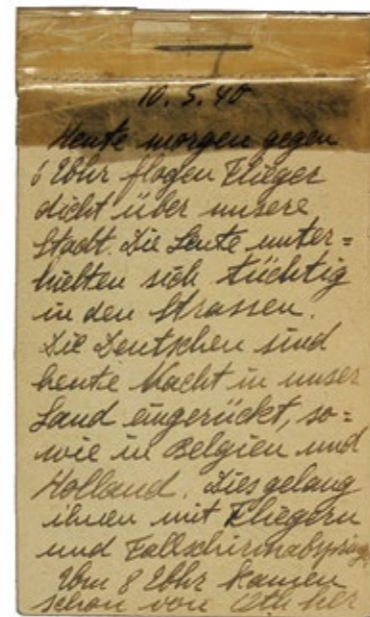 10.5.40
Heute morgen gegen
6 Uhr flogen Flieger
dicht über unsere
Stadt. Die Leute unter=
hielten sich tüchtig
in den Strassen.
Die Deutschen sind
heute Nacht in unser
Land eingerückt, so=
wie in Belgien und
Holland. Dies gelang
ihnen mit Fliegern
und Fallschirmabspring
Um 8 Uhr kamen
schon von Eth her